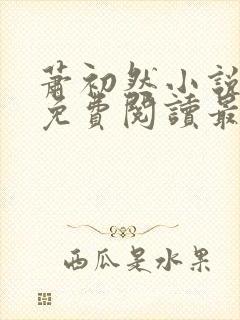 蕭初然小說
免費閱讀最
西瓜是水果